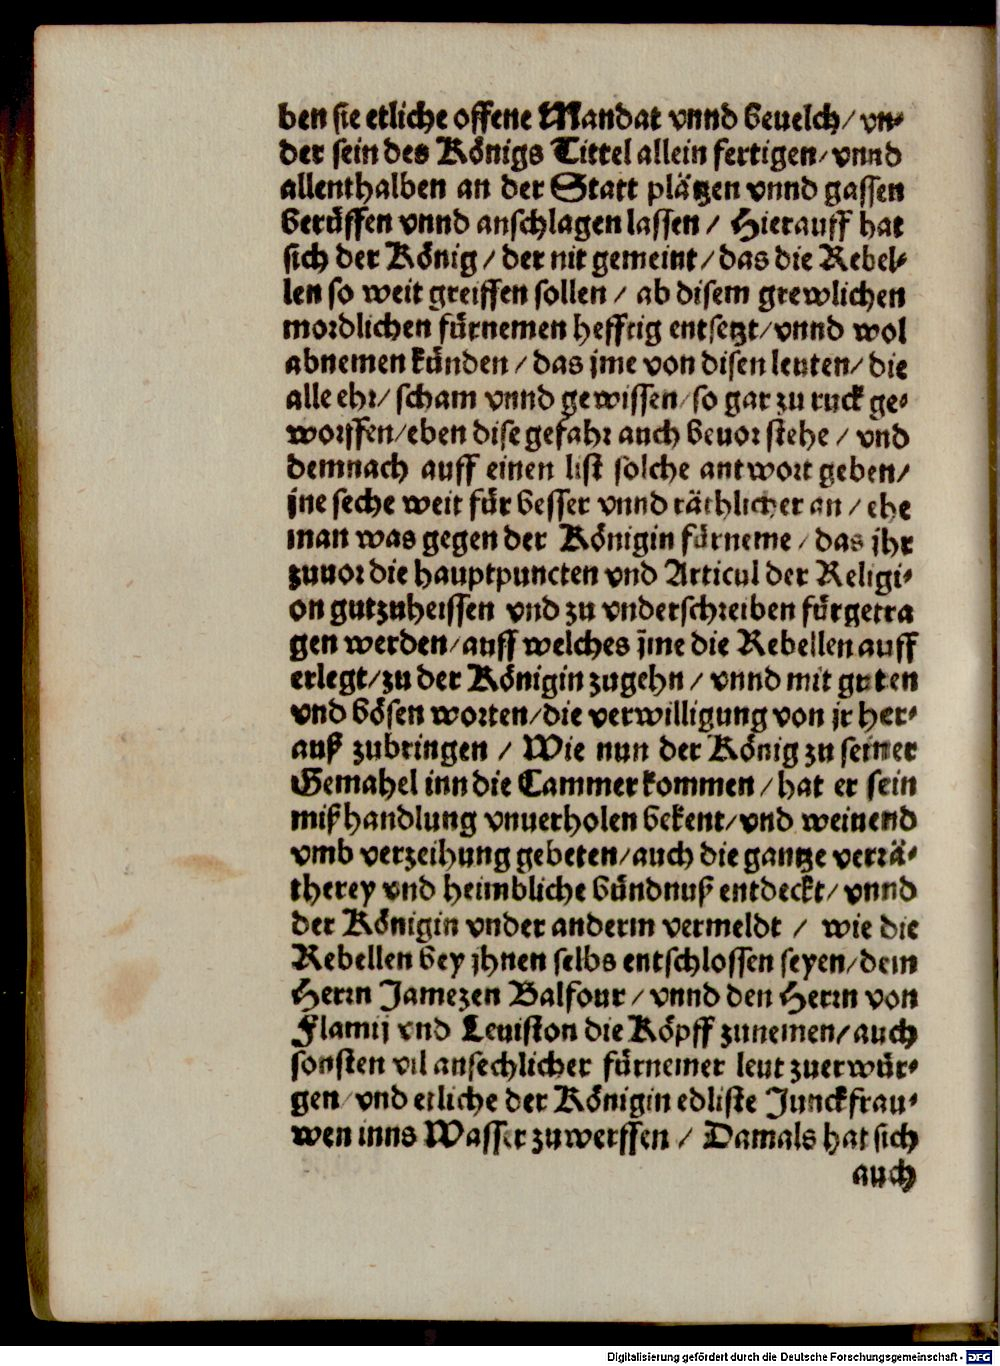 ben sie etliche offene Mandat vnnd beuelch/ vn⸗
der sein des Königs Tittel allein fertigen/ vnnd
allenthalben an der Statt plätzen vnnd gassen
berůffen vnnd anschlagen lassen / Hierauff hat
sich der König / der nit gemeint / das die Rebel⸗
len so weit greiffen sollen / ab disem grewlichen
mordlichen fürnemen hefftig entsetzt/ vnnd wol
abnemen künden / das jme von disen leuten/ die
alle ehr/ scham vnnd gewissen/ so gar zu ruck ge⸗
worffen/eben dise gefahr auch beuor stehe / vnd
demnach auff einen list solche antwort geben/
jne seche weit für besser vnnd räthlicher an / ehe
man was gegen der Königin fürneme / das jhr
zuuor die hauptpuncten vnd Articul der Religi⸗
on gutzuheissen vnd zu vnderschreiben fürgetra
gen werden/auff welches jme die Rebellen auff
erlegt/zu der Königin zugehn / vnnd mit guten
vnd bösen worten/die verwilligung von jr her⸗
auß zubringen / Wie nun der König zu seiner
Gemahel inn die Cammer kommen / hat er sein
mißhandlung vnuerholen bekent/ vnd weinend
vmb verzeihung gebeten/auch die gantze verrä⸗
therey vnd heimbliche bündnuß entdeckt/ vnnd
der Königin vnder anderm vermeldt / wie die
Rebellen bey jhnen selbs entschlossen seyen/dem
Herrn Jamezen Balfour / vnnd den Herrn von
Flamij vnd Leuiston die Köpff zunemen/ auch
sonsten vil ansechlicher fürnemer leut zuerwür⸗
gen/ vnd etliche der Königin edliste Junckfrau⸗
wen inns Wasser zuwerffen / Damals hat sich
auch
Digitalisierung gefördert durch die Deutsche Forschungsgemeinschaft - DFG